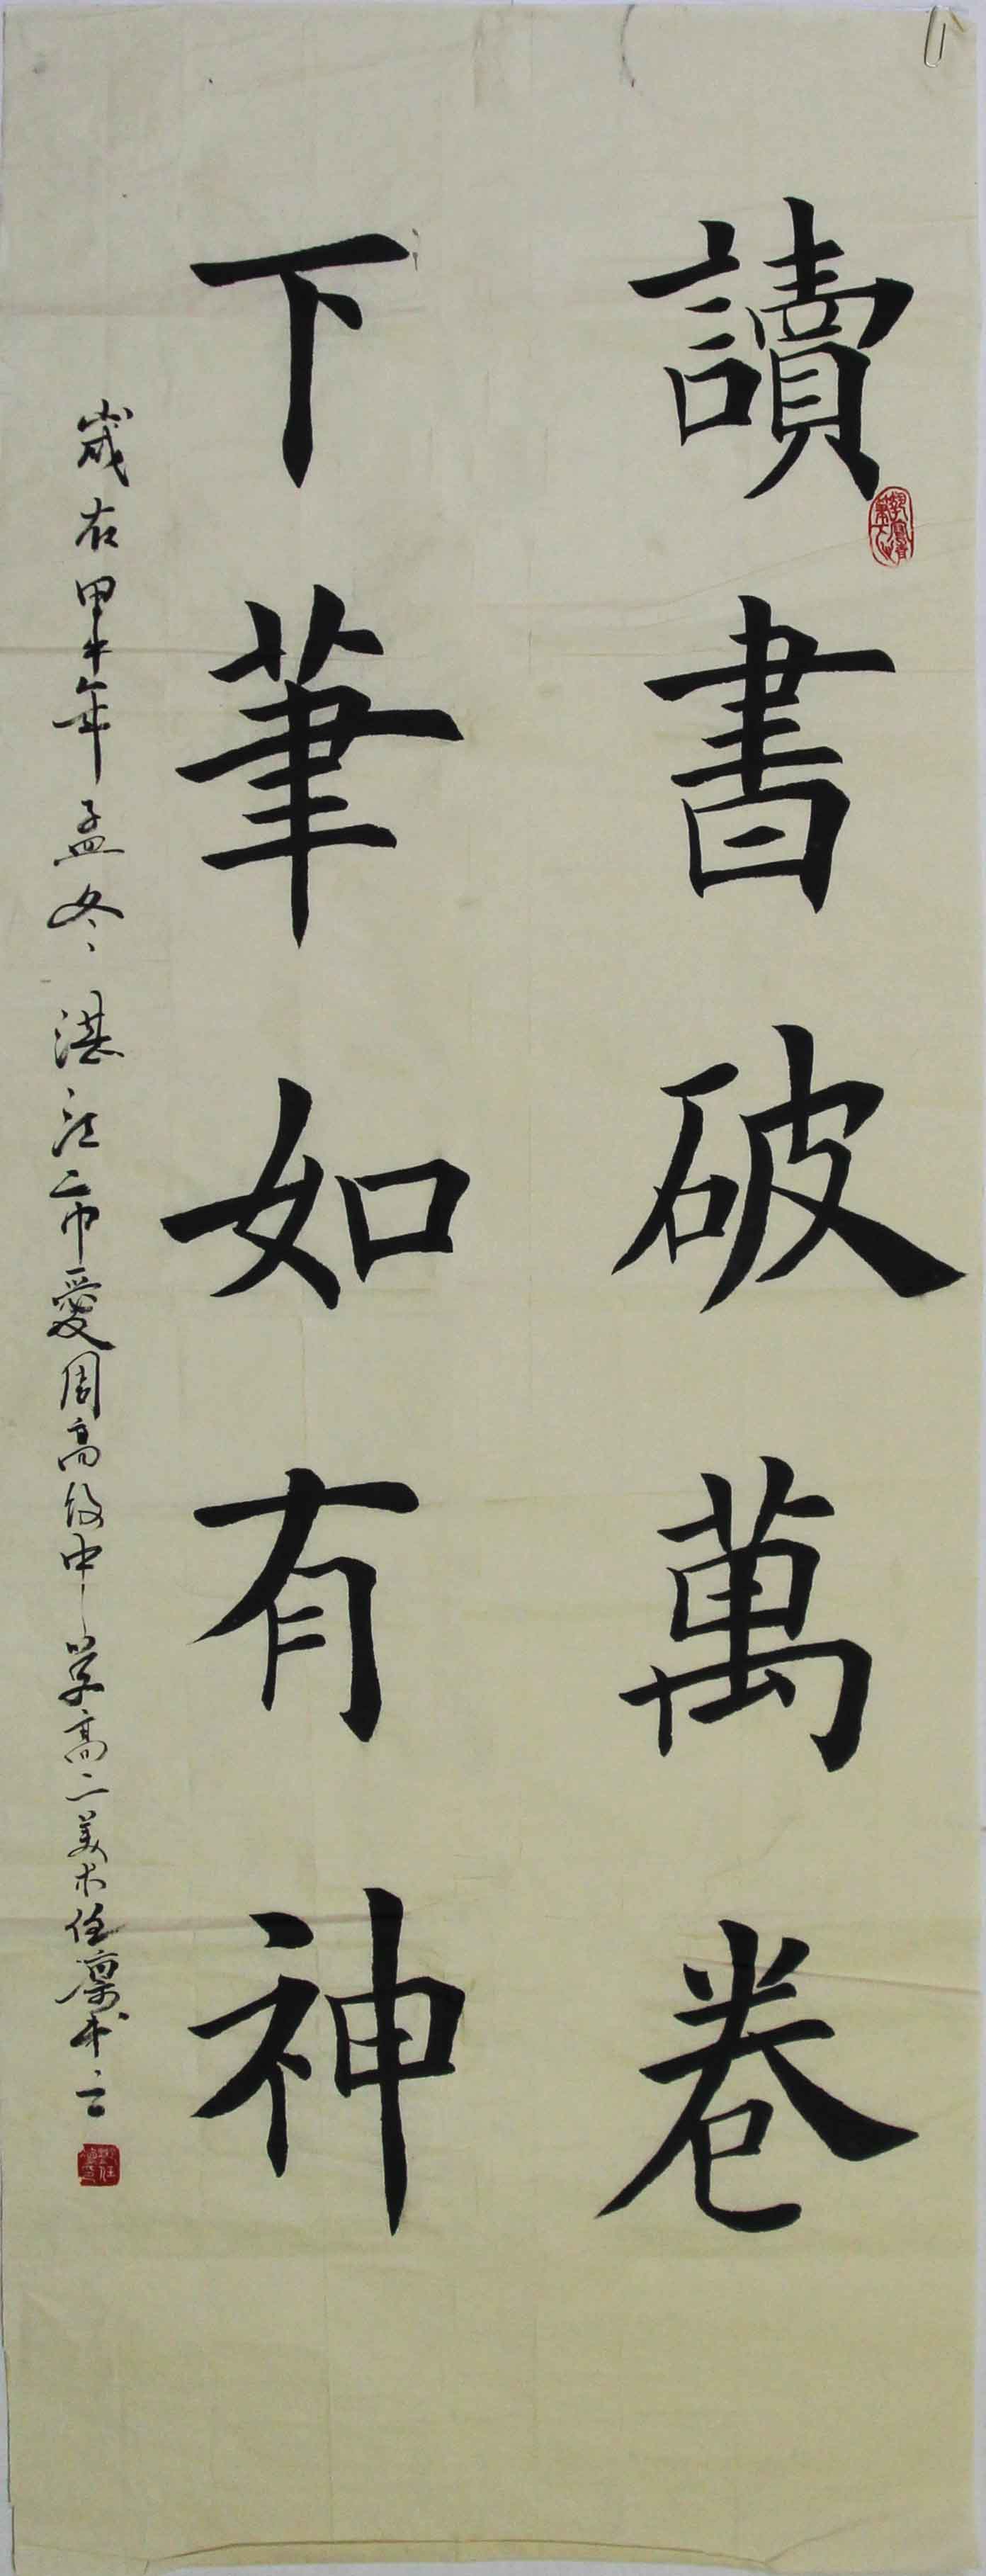 讀書破萬卷
下筆如有神
歲在甲午年孟冬湛江市愛周高级中学高二美术任凛書